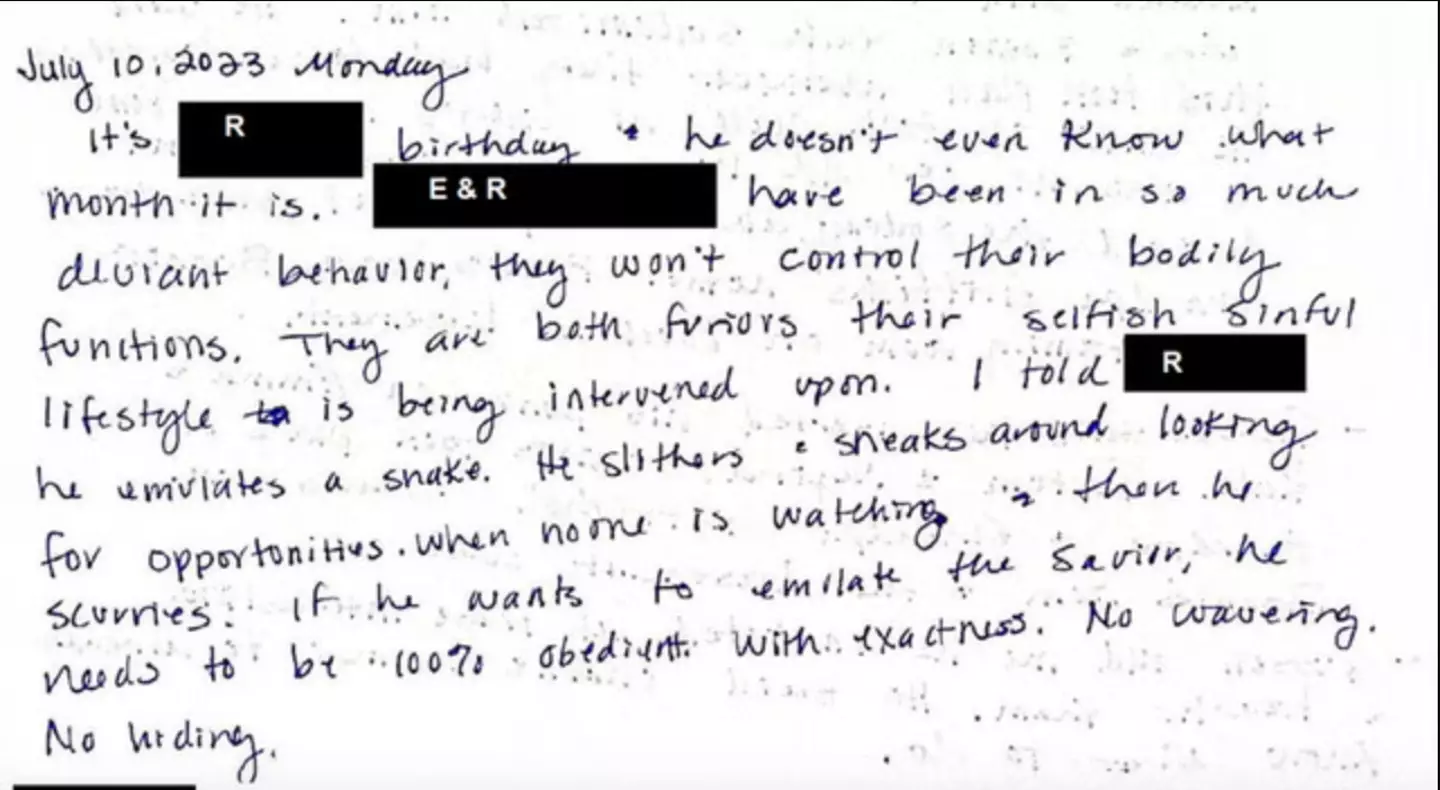 July 10, 2023 Monday
It's R birthday & he doesn't even know what
month it is. E & R have been in so much
deviant behavior, they won't control their bodily
functions. They are both furiors their selfish sinful
lifestyle is being intervened upon. I told R
he emulates a snake. He slithers & sneaks around looking
for opportunities. When no one is watching & then he
scurries. If he wants to emilate the Savior, he
needs to be 100% obedient with exactness. No wavering.
No hiding.